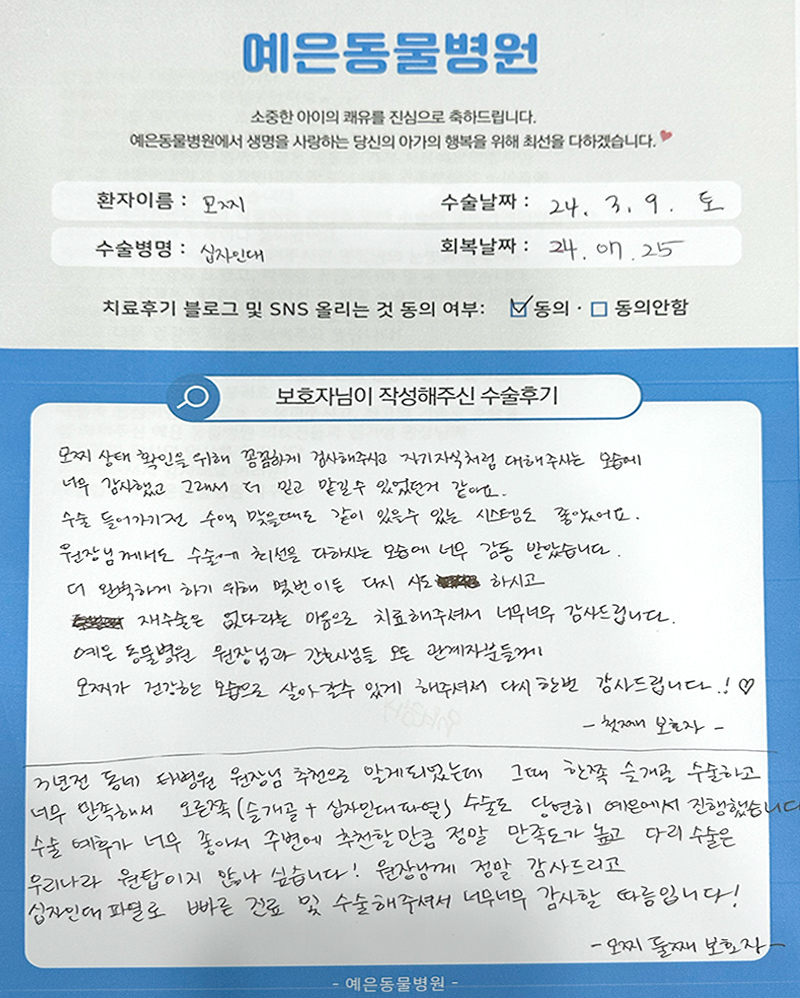 예은동물병원
소중한 아이의 쾌유를 진심으로 축하드립니다.
예은동물병원에서 생명을 사랑하는 당신의 아가의 행복을 위해 최선을 다하겠습니다.
환자이름 : 모찌
수술날짜 : 24. 3. 9. 토
수술병명 : 십자인대
회복날짜 : 24. 07. 25
치료후기 블로그 및 SNS 올리는 것 동의 여부: ☑동의 · □ 동의안함
보호자님이 작성해주신 수술후기
모찌 상태 확인을 위해 꼼꼼하게 검사해주시고 자기자식처럼 대해주시는 모습에
너무 감사했고 그래서 더 믿고 맡길수 있었던거 같아요.
수술 들어가기전 수액 맞을때도 같이 있을수 있는 시스템도 좋았어요.
원장님께서도 수술에 최선을 다하시는 모습에 너무 감동 받았습니다.
더 완벽하게 하기 위해 몇번이든 다시 시도 하시고
재수술은 없다라는 마음으로 치료해주셔서 너무너무 감사드립니다.
예은 동물병원 원장님과 간호사님들 모든 관계자분들께
모찌가 건강한 모습으로 살아갈수 있게 해주셔서 다시한번 감사드립니다.! ♡
- 첫째 보호자 -
3년전 동네 타병원 원장님 추천으로 알게되었는데 그때 한쪽 슬개골 수술하고
너무 만족해서 오른쪽(슬개골 + 십자인대파열) 수술도 당연히 예은에서 진행했습니다
수술 예후가 너무 좋아서 주변에 추천할만큼 정말 만족도가 높고 다리 수술은
우리나라 원탑이지 않나 싶습니다! 원장님께 정말 감사드리고
십자인대 파열로 빠른 진료 및 수술해주셔서 너무너무 감사할 따름입니다!
- 모찌 둘째 보호자 -
- 예은동물병원 -